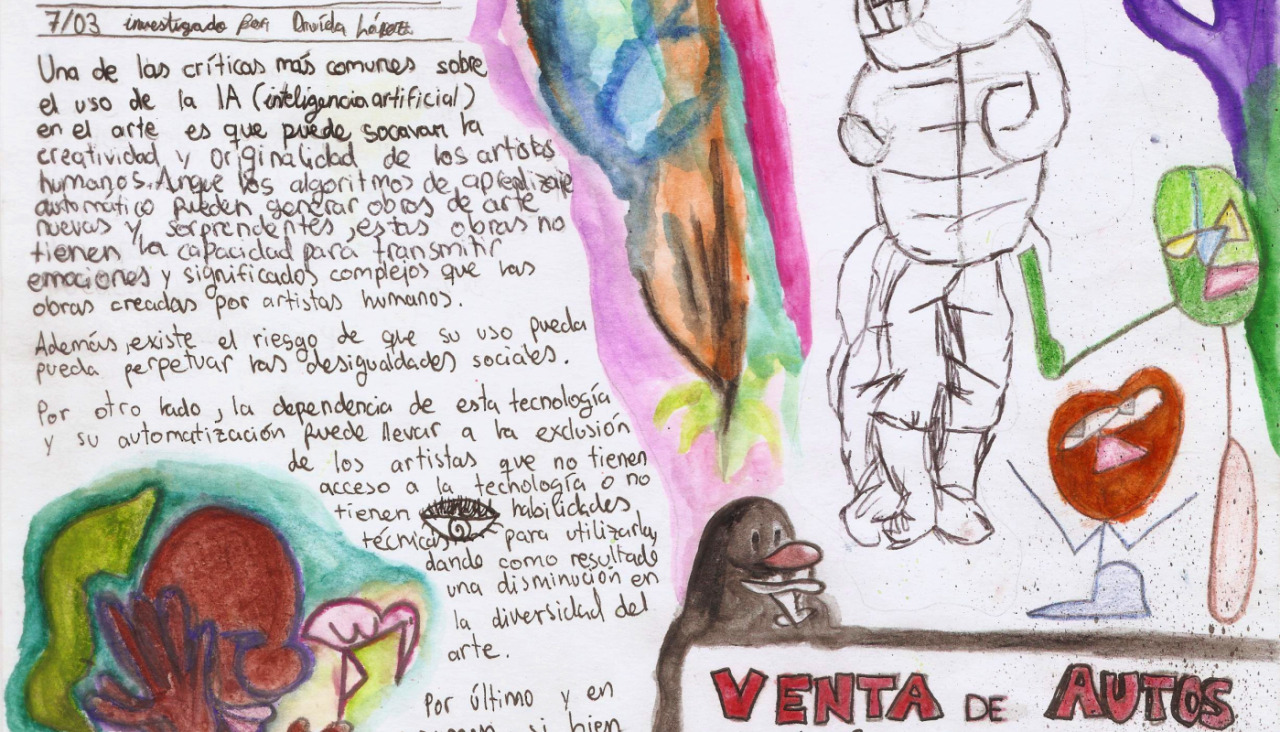 7/03 investigado por Davida López
Una de las críticas más comunes sobre
el uso de la IA (inteligencia artificial)
en el arte es que puede socavar la
creatividad y originalidad de los artistas
humanos. Anque los algoritmos de aprendizaje
automático pueden generar obras de arte
nuevas y sorprendentes, estas obras no
tienen la capacidad para transmitir
emociones y significados complejos que las
obras creadas por artistas humanos.
Además, existe el riesgo de que su uso pueda
pueda perpetuar las desigualdades sociales.
Por otro lado, la dependencia de esta tecnología
y su automatización puede llevar a la exclusión
de los artistas que no tienen
acceso a la tecnología o no
tienen habilidades
técnicas para utilizarla,
dando como resultado
una disminución en
la diversidad del
arte.
Por último y en
si bien
VENTA DE AUTOS